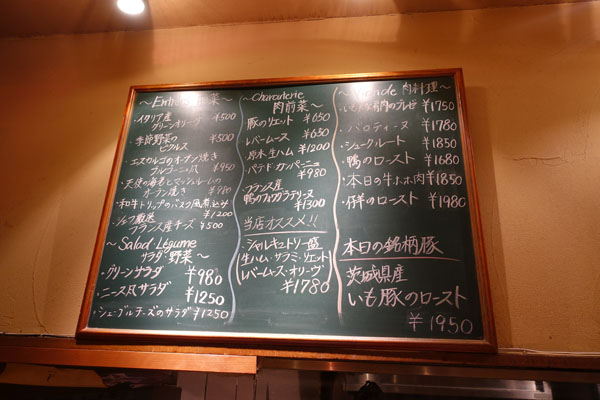 ~Entrée 前菜~
・イタリア産
グリーンオリーブ ¥500
・季節野菜の
ピクルス ¥500
・エスカルゴのオーブン焼き
ブルゴーニュ風 ¥950
・天使の海老とマッシュルームの
オーブン焼き ¥980
・和牛トリップのバスク風煮込み
¥1200
・シェフ厳選
フランス産チーズ ¥500
~Salad Légume
サラダ 野菜~
・グリーンサラダ ¥980
・ニース風サラダ ¥1250
・シェーブルチーズのサラダ ¥1250
~Charcuterie
肉前菜~
豚のリエット ¥650
レバームース ¥650
原木生ハム ¥1200
パテドカンパーニュ
¥980
フランス産
鴨のフォアグラテリーヌ
¥1300
当店オススメ!!
シャルキュトリー盛
(生ハム・サラミ・リエット
レバームース・オリーヴ)
¥1780
~Viande 肉料理~
¥1750
・バロティーヌ ¥1780
・シュークルート ¥1850
・鴨のロースト ¥1680
・本日の牛ホホ肉 ¥1850
・仔羊のロースト ¥1980
本日の銘柄豚
茨城県産
いも豚のロースト
¥1950